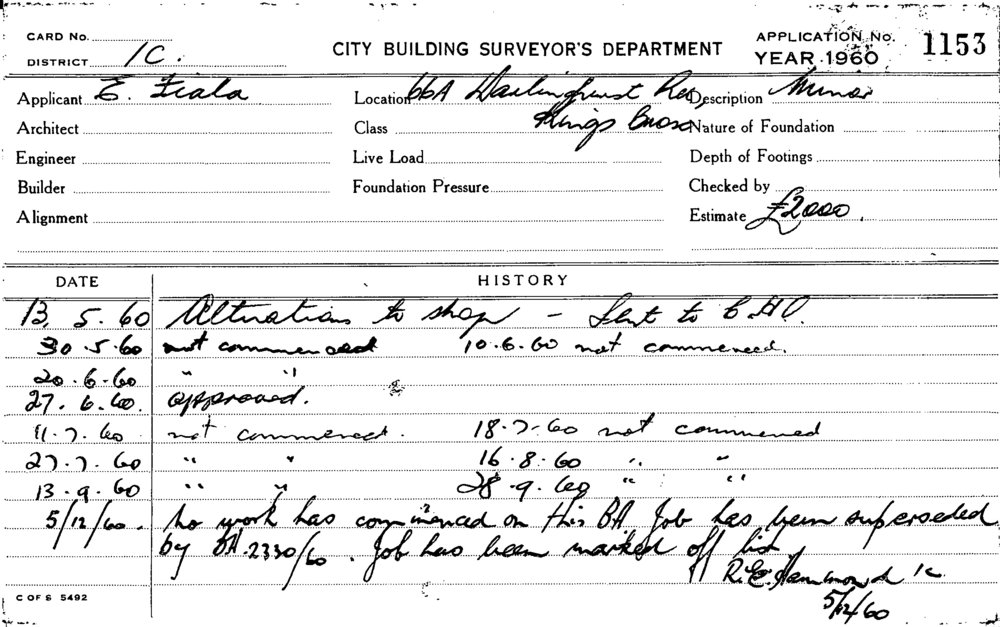 CARD No.
DISTRICT 1C.
CITY BUILDING SURVEYOR'S DEPARTMENT
APPLICATION No. 1153
YEAR 1960
Applicant E. Fiala
Location 66A Darlinghurst Rd,
Kings Cross
Description Minor
Architect
Class
Nature of Foundation
Engineer
Live Load
Depth of Footings
Builder
Foundation Pressure
Checked by
Alignment
Estimate £2000.
DATE HISTORY
13. 5. 60 Alterations to shop – Sent to C.H.O.
30.5.60 not commenced 10.6.60 not commenced.
20.6.60 " "
27.6.60. approved.
11.7.60 not commenced. 18.7.60 not commenced
27.7.60 " " 16.8.60 " "
13.9.60 " " 28.9.60 " "
5/12/60. No work has commenced on this BA. Job has been superseded
by BA.2330/60. Job has been marked off list
R.E. Hammond 1C
5/12/60
C OF S 5492